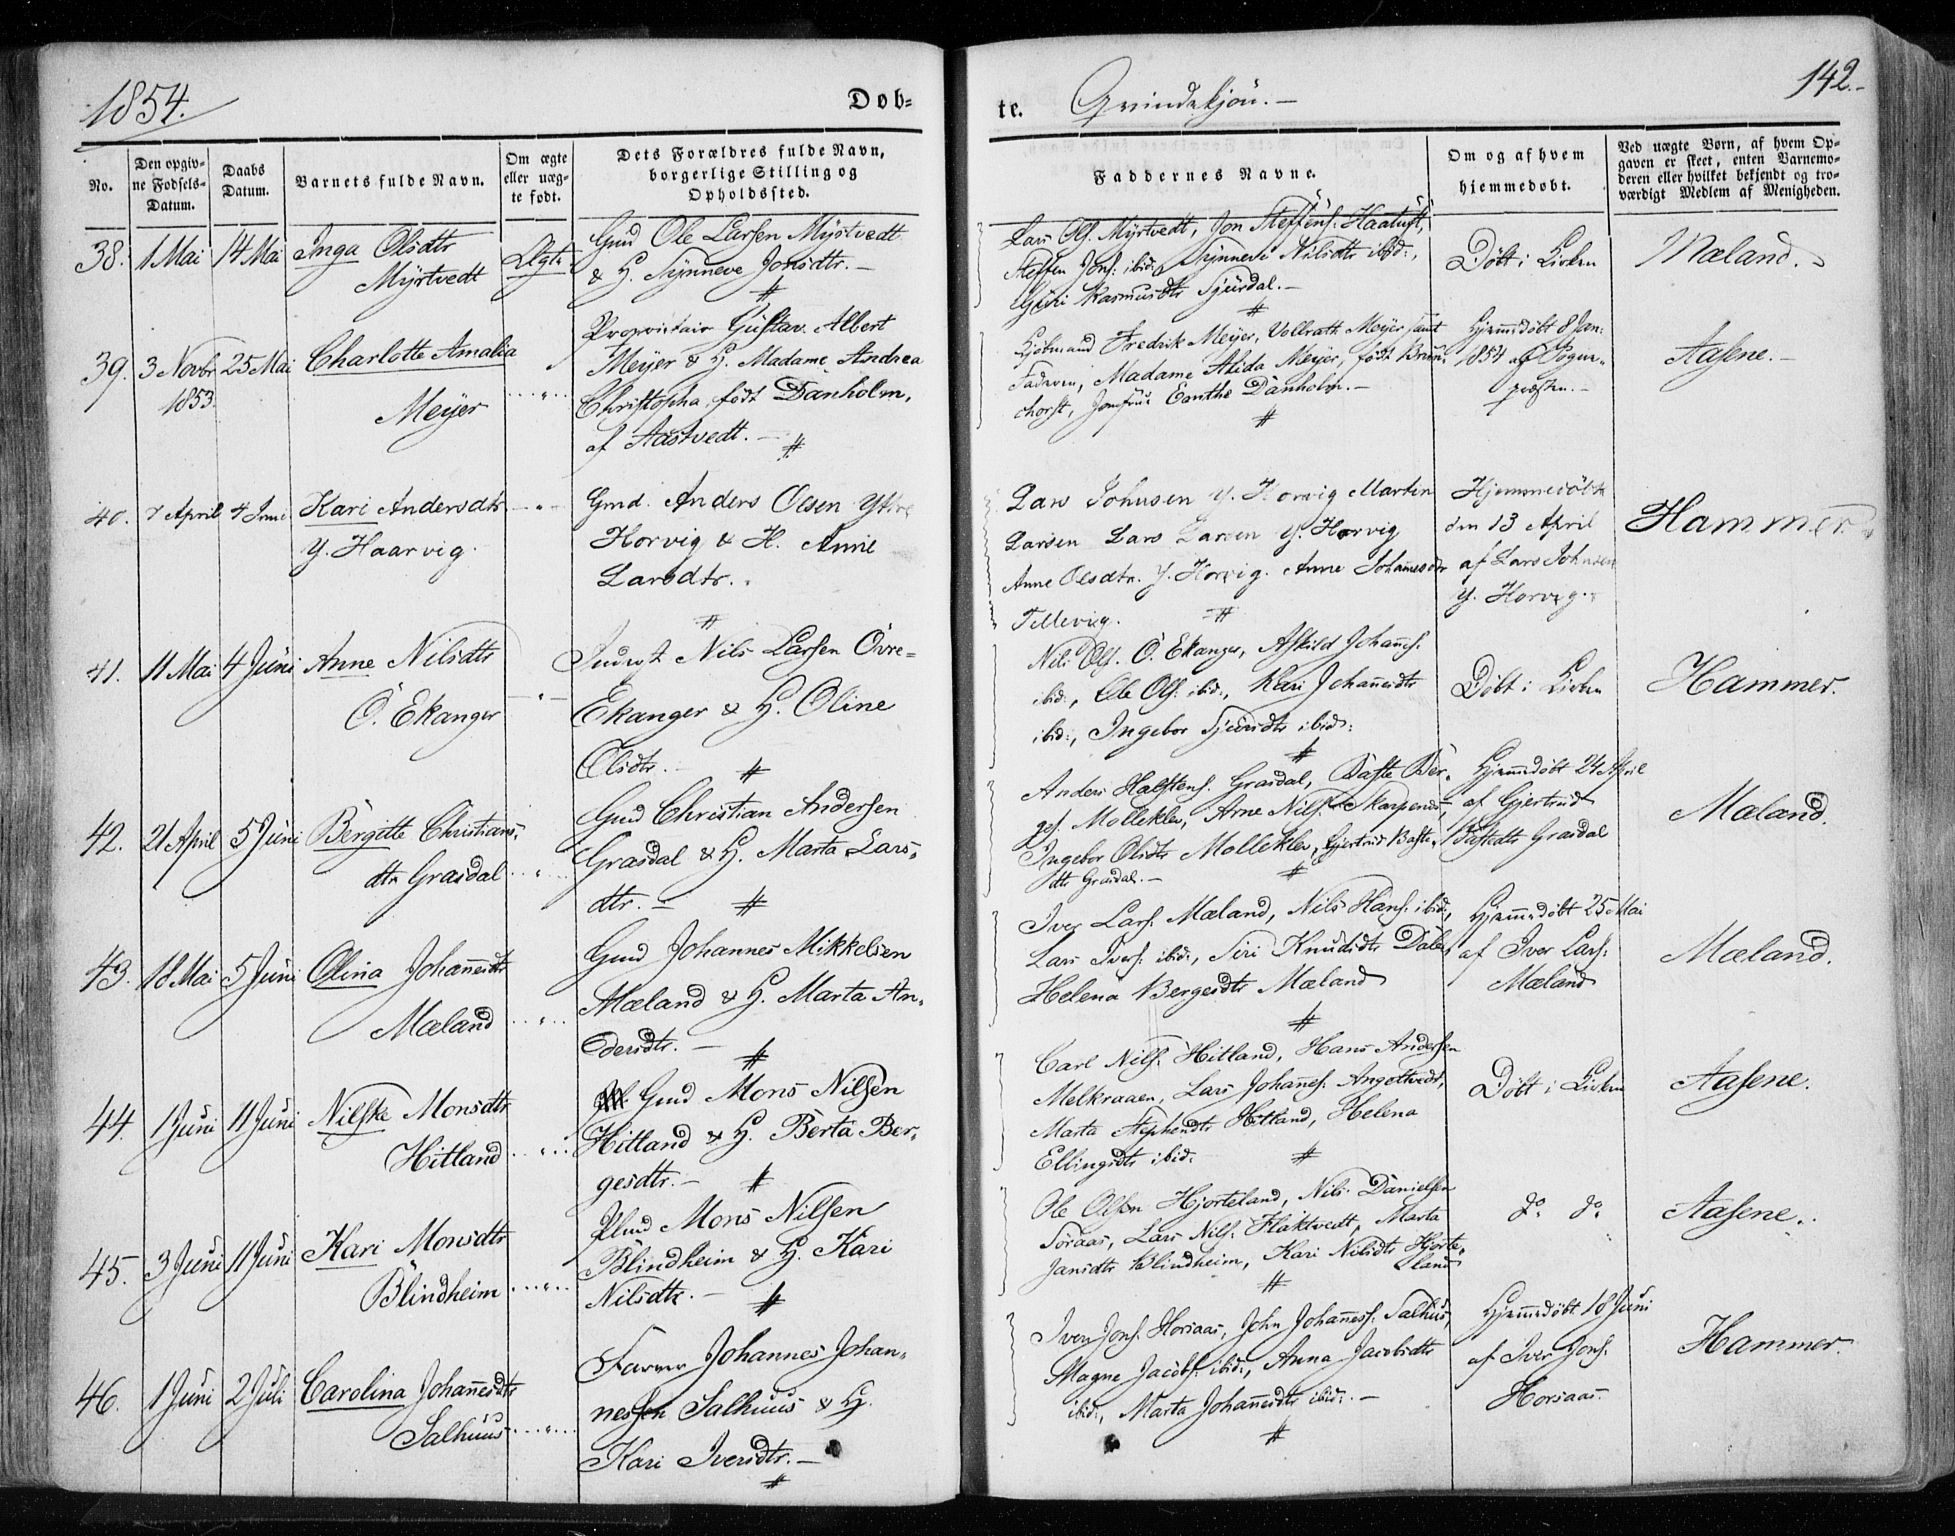 1854.
Døb=
te. Qvindekjøn.-
142.-
No.
Den opgiv-
ne Fødsels-
Datum.
Daabs
Datum.
Barnets fulde Navn.
Om ægte
eller uæg-
te født.
Dets Forældres fulde Navn,
borgerlige Stilling og
Opholdssted.
Faddernes Navne.
Om og af hvem
hjemmedøbt.
Ved uægte Børn, af hvem Op-
gaven er skeet, enten Barnemo-
deren eller hvilket bekjendt og tro-
værdigt Medlem af Menigheden.
38. 1 Mai 14 Mai Inga Olsdtr
Myrtvedt
Ægte
Gmd Ole Larsen Myrtvedt
& H. Synneve Jonsdtr.-
Lars Ols. Myrtvedt, Jon Steffens. Haatuft,
Steffen Jons. ibid:, Synneve Nilsdtr ibid:,
Guri Rasmusdtr Sjurdal.-
Døbt i Kirken
Mæland.
39. 3 Novbr 25 Mai Charlotte Amalia
1853.
Meyer
Proprietair Gustav Albert
Meyer & H. Madame Andrea
Christopha født Danholm,
af Aastvedt.-
Kjøbmand Fredrik Meyer, Vollrath Meyer samt
Faderen, Madame Alida Meyer, født Brun-
chorst, Jomfrue Eanthe Danholm.-
Hjemmedøbt 8 Jan:
1854 af Sogne-
præsten.-
Aasene.-
40. 7 April 4 Juni Kari Andersdtr -"-
Y. Haarvig.
Gmd. Anders Olsen Yttre
Horvig & H. Anne
Larsdtr.
Lars Johnsen Y. Horvig Martin
Larsen Lars Larsen Y. Horvig
Anne Olsdtr. Y. Horvig. Anne Johannesdtr
Tellevig.
Hjemmedøbt
den 13 April
af Lars Johnsen
Y. Horvig.
Hammer.
41. 11 Mai 4 Juni Anne Nilsdtr
Ö. Ekanger
-"-
Inderst Nils Larsen Övre-
Ekanger & H. Oline
Olsdtr.-
Nils Ols. Ö. Ekanger, Askild Johans.
ibid:, Ole Ols. ibid:, Kari Johannesdtr
ibid:, Ingebor Sjursdtr ibid:
Døbt i Kirken
Hammer.
42. 21 April 5 Juni Bergitte Christians-
dtr Grasdal
Gmd Christian Andersen
Grasdal & H. Marta Lars-
dtr.-
Anders Halstens. Grasdal, Baste Ber-
ges. Molleklev, Arne Nils. Skarpenes,
Ingebor Olsdtr Molleklev, Gjertrud Baste-
dtr Grasdal.-
Hjemmedøbt 24 April
af Gjertrud
Bastedtr Grasdal
Mæland.
43. 18 Mai 5 Juni Olina Johannesdtr
Mæland
Gmd Johannes Mikkelsen
Mæland & H. Marta An-
dersdtr.-
Iver Lars. Mæland, Nils Hans. ibid:,
Lars Ivers. ibid:, Siri Knudsdtr Dale,
Helena Bergesdtr Mæland
Hjemmedøbt 25 Mai
af Iver Lars:
Mæland
Mæland.
44. 1 Juni 11 Juni Nilske Monsdtr
Hitland
Gmd Mons Nilsen
Hitland & H. Berta Ber-
gesdtr.-
Carl Nils. Hitland, Hans Andersen
Melkraaen, Lars Johannes. Angeltvedt,
Marta Stephensdtr Hitland, Helena
Ellingsdtr ibid:
Døbt i Kirken
Aasene.
45. 3 Juni 11 Juni Kari Monsdtr
Blindheim
Plmd Mons Nilsen
Blindheim & H. Kari
Nilsdtr.-
Ole Olsen Hjorteland, Nils Danielsen
Søraas, Lars Nils. Flaktvedt, Marta
Jansdtr Blindheim, Kari Nilsdtr Hjorte-
land
do. do.
Aasene.
46. 1 Juni 2 Juli Carolina Johannesdtr
Salhuus
Farver Johannes Johan-
nessen Salhuus & H.
Kari Iversdtr.-
Iver Jons. Horsaas, John Johanness. Salhus,
Magne Jacobs. ibid:, Anna Jacobsdtr
ibid:, Marta Johannesdtr ibid:.-
Hjemmedøbt 18 Juni
af Iver Jons.
Horsaas.
Hammer.